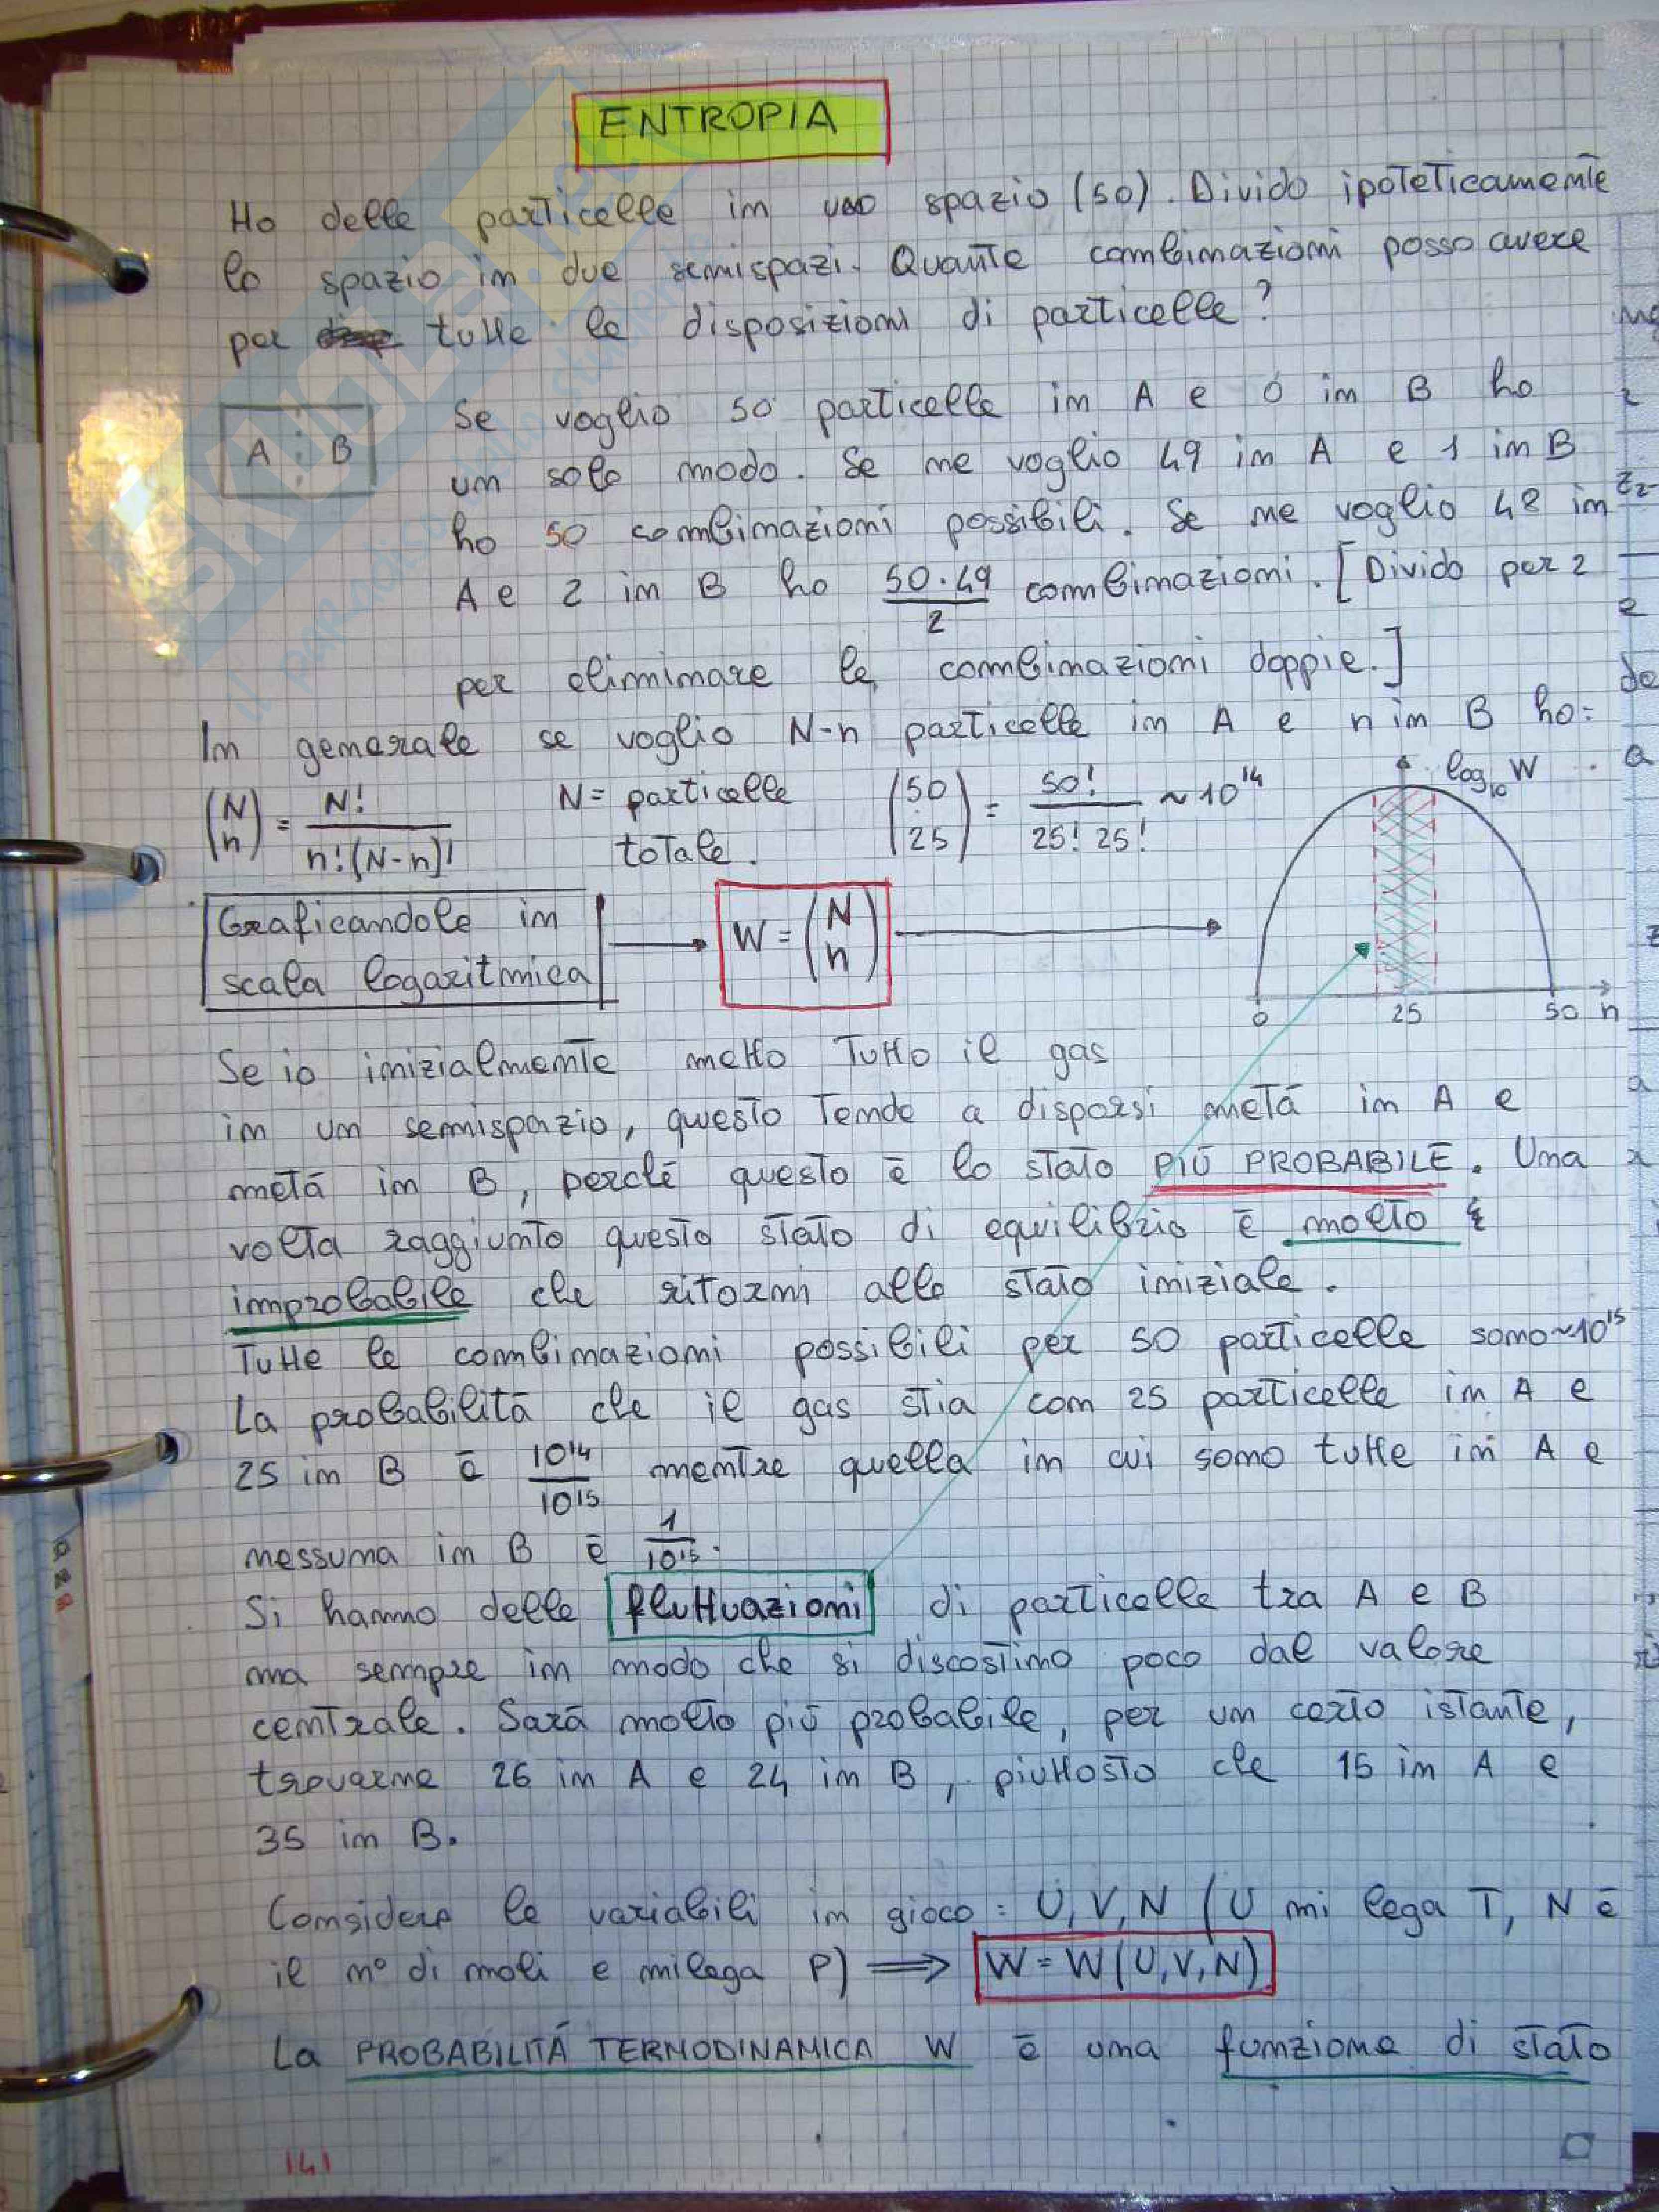 ENTROPIA
Ho delle particelle in uno spazio (50). Divido ipoteticamente
lo spazio in due semispazi. Quante combinazioni posso avere
per tutte le disposizioni di particelle?
A B
Se voglio 50 particelle in A e 0 in B ho
un solo modo. Se ne voglio 49 in A e 1 in B
ho 50 combinazioni possibili. Se ne voglio 48 in
A e 2 in B ho 50·49/2 combinazioni. [Divido per 2
per eliminare le combinazioni doppie.]
In generale se voglio N-n particelle in A e n in B ho:
(N n) = N!/n!(N-n)! N = particelle totale. (50 25) = 50!/25! 25! ~ 10¹⁴
log₁₀ W
Graficandole in
scala logaritmica
W = (N n)
0 25 50 n
Se io inizialmente metto tutto il gas
in un semispazio, questo tende a disporsi metà in A e
metà in B, perché questo è lo stato PIÙ PROBABILE. Una
volta raggiunto questo stato di equilibrio è molto
improbabile che ritorni allo stato iniziale.
Tutte le combinazioni possibili per 50 particelle sono ~10¹⁵
La probabilità che il gas stia con 25 particelle in A e
25 in B è 10¹⁴/10¹⁵ mentre quella in cui sono tutte in A e
nessuna in B è 1/10¹⁵.
Si hanno delle fluttuazioni di particelle tra A e B
ma sempre in modo che si discostino poco dal valore
centrale. Sarà molto più probabile, per un certo istante,
trovarne 26 in A e 24 in B, piuttosto che 15 in A e
35 in B.
Considero le variabili in gioco: U, V, N (U mi lega T, N è
il n° di moli e mi lega P) ⟹ W = W(U,V,N)
La PROBABILITÁ TERMODINAMICA W è una funzione di stato
141
SKUOLA.net
il paradiso dello studente